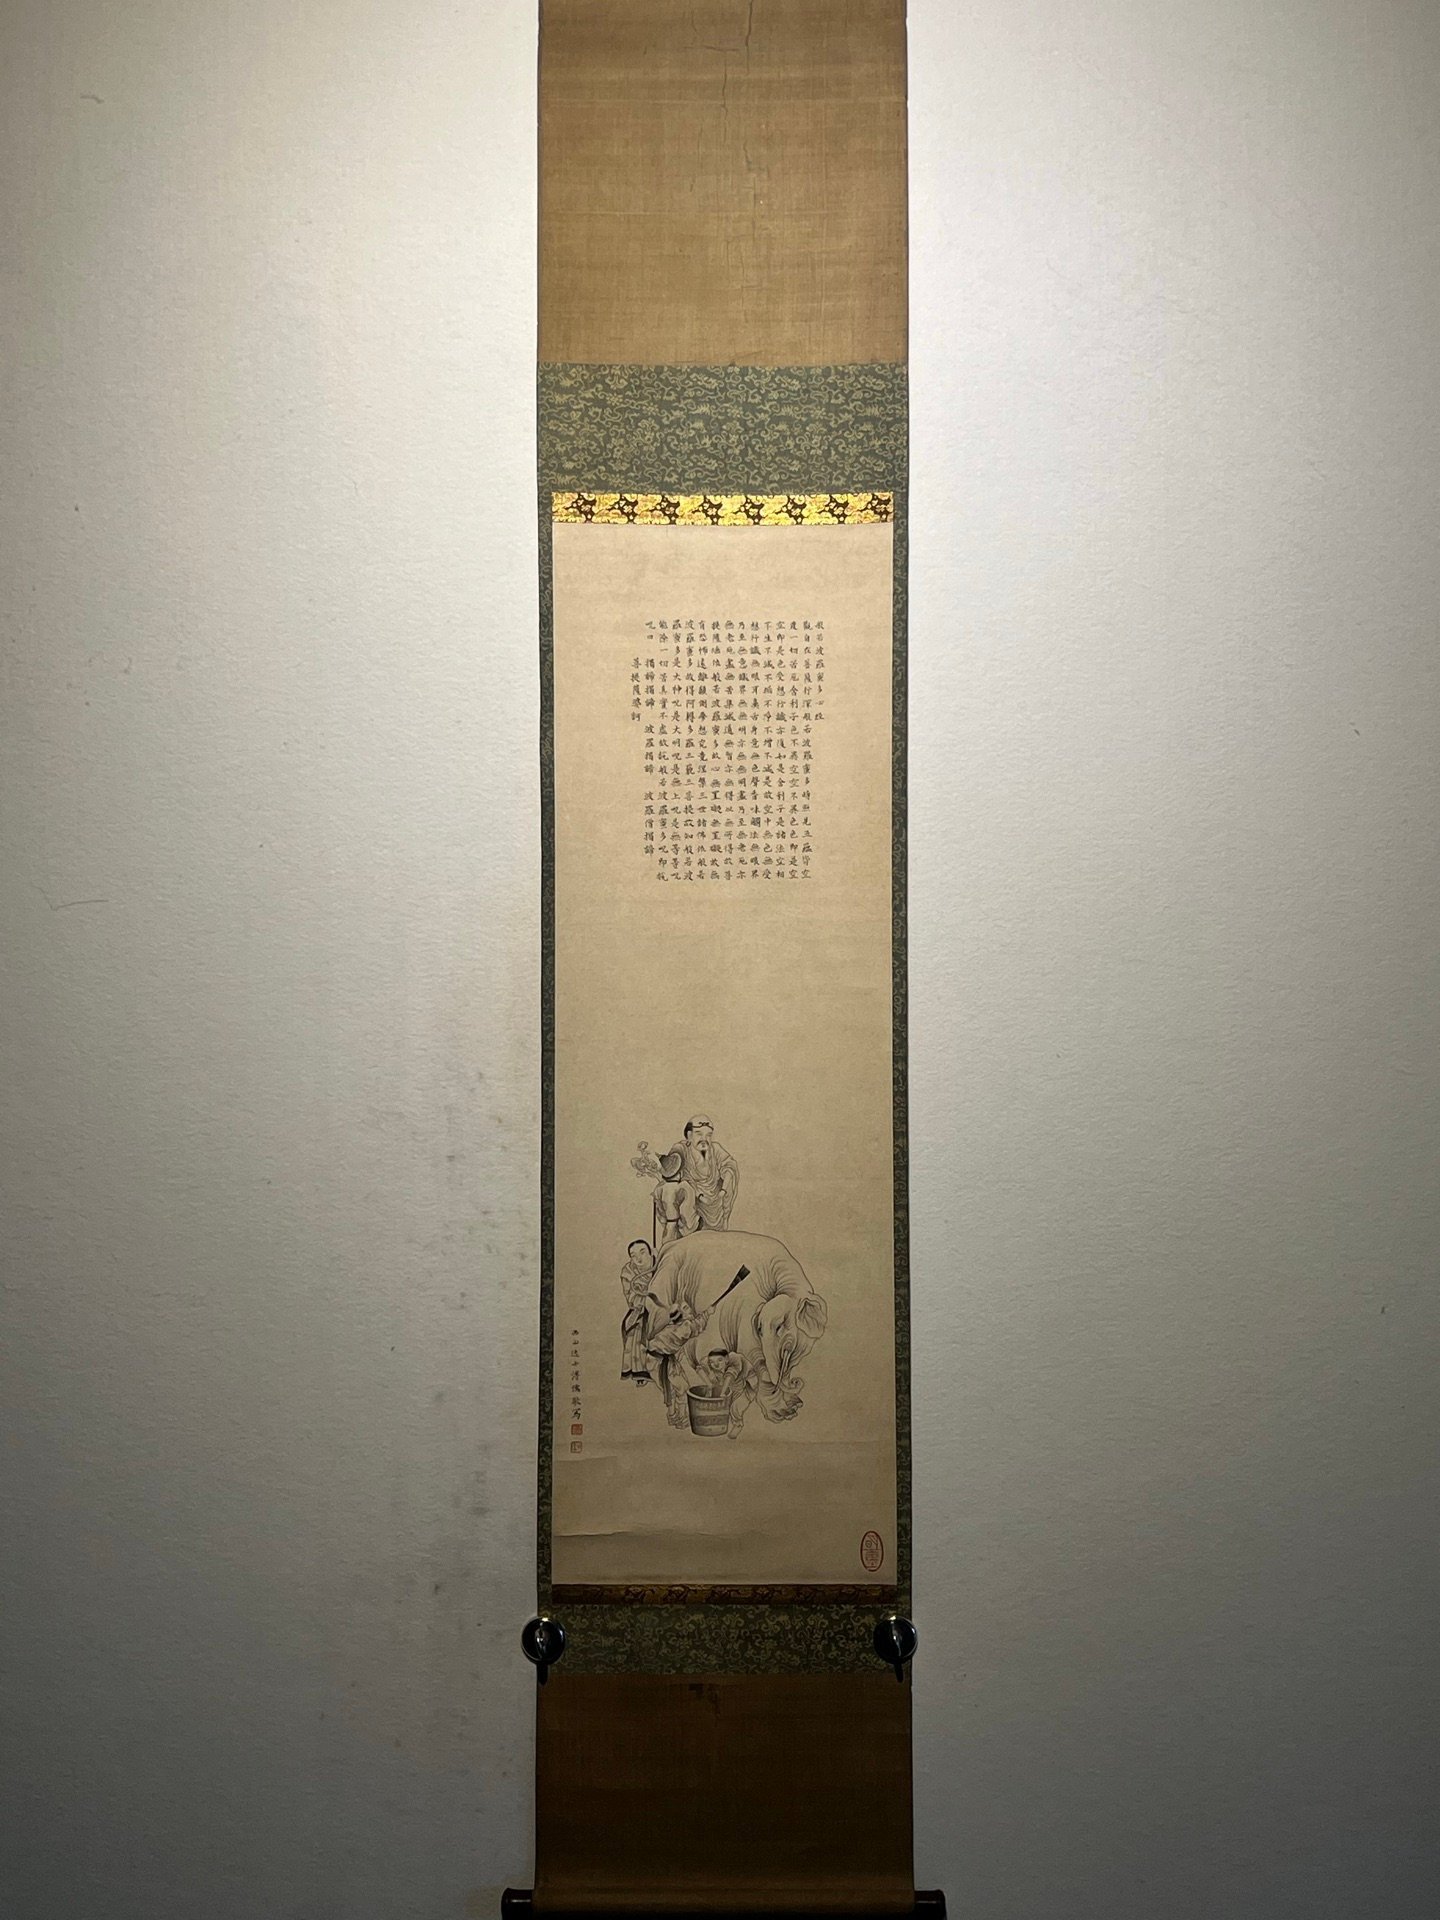 般若波羅蜜多心経
觀自在菩薩行深般若波羅蜜多時照見五蘊皆空
度一切苦厄舍利子色不異空空不異色色即是空
空即是色受想行識亦復如是舍利子是諸法空相
不生不滅不垢不淨不增不減是故空中無色無受
想行識無眼耳鼻舌身意無色聲香味觸法無眼界
乃至無意識界無無明亦無無明盡乃至無老死亦
無老死盡無苦集滅道無智亦無得以無所得故菩
提薩埵依般若波羅蜜多故心無罣礙無罣礙故無
有恐怖遠離顛倒夢想究竟涅槃三世諸佛依般若
波羅蜜多故得阿耨多羅三藐三菩提故知般若波
羅蜜多是大神咒是大明咒是無上咒是無等等咒
能除一切苦真實不虛故說般若波羅蜜多咒即說
咒曰 揭諦揭諦 波羅揭諦 波羅僧揭諦
菩提薩婆訶
西山逸士溥儒敬寫